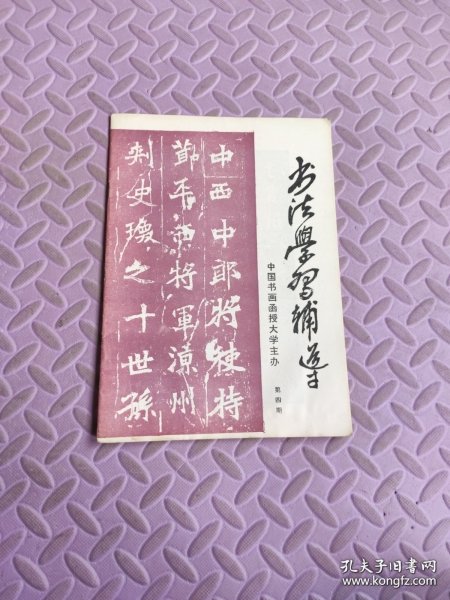 书法学习辅导
中国书画函授大学主办
第四期
中西中郎将使持
节平南将軍凉州
刺史瓊之十世孫
孔夫子旧书网
www.kongfz.com